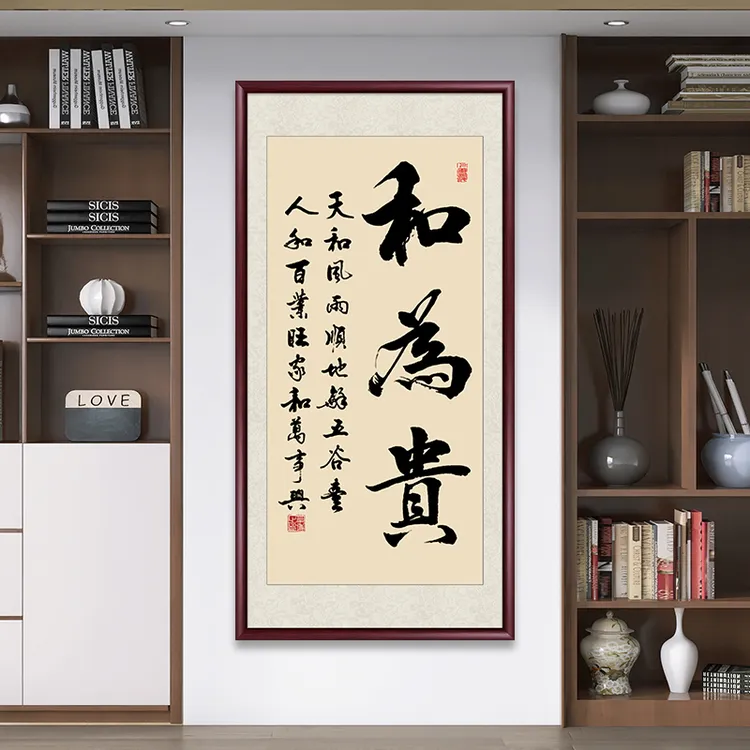 和為貴
天和風雨順地五谷豐
人和百業旺家和萬事興
SICIS
SICIS
JUMBO COLLECTION
SICIS
JUMBO COLLECTION
LOVE